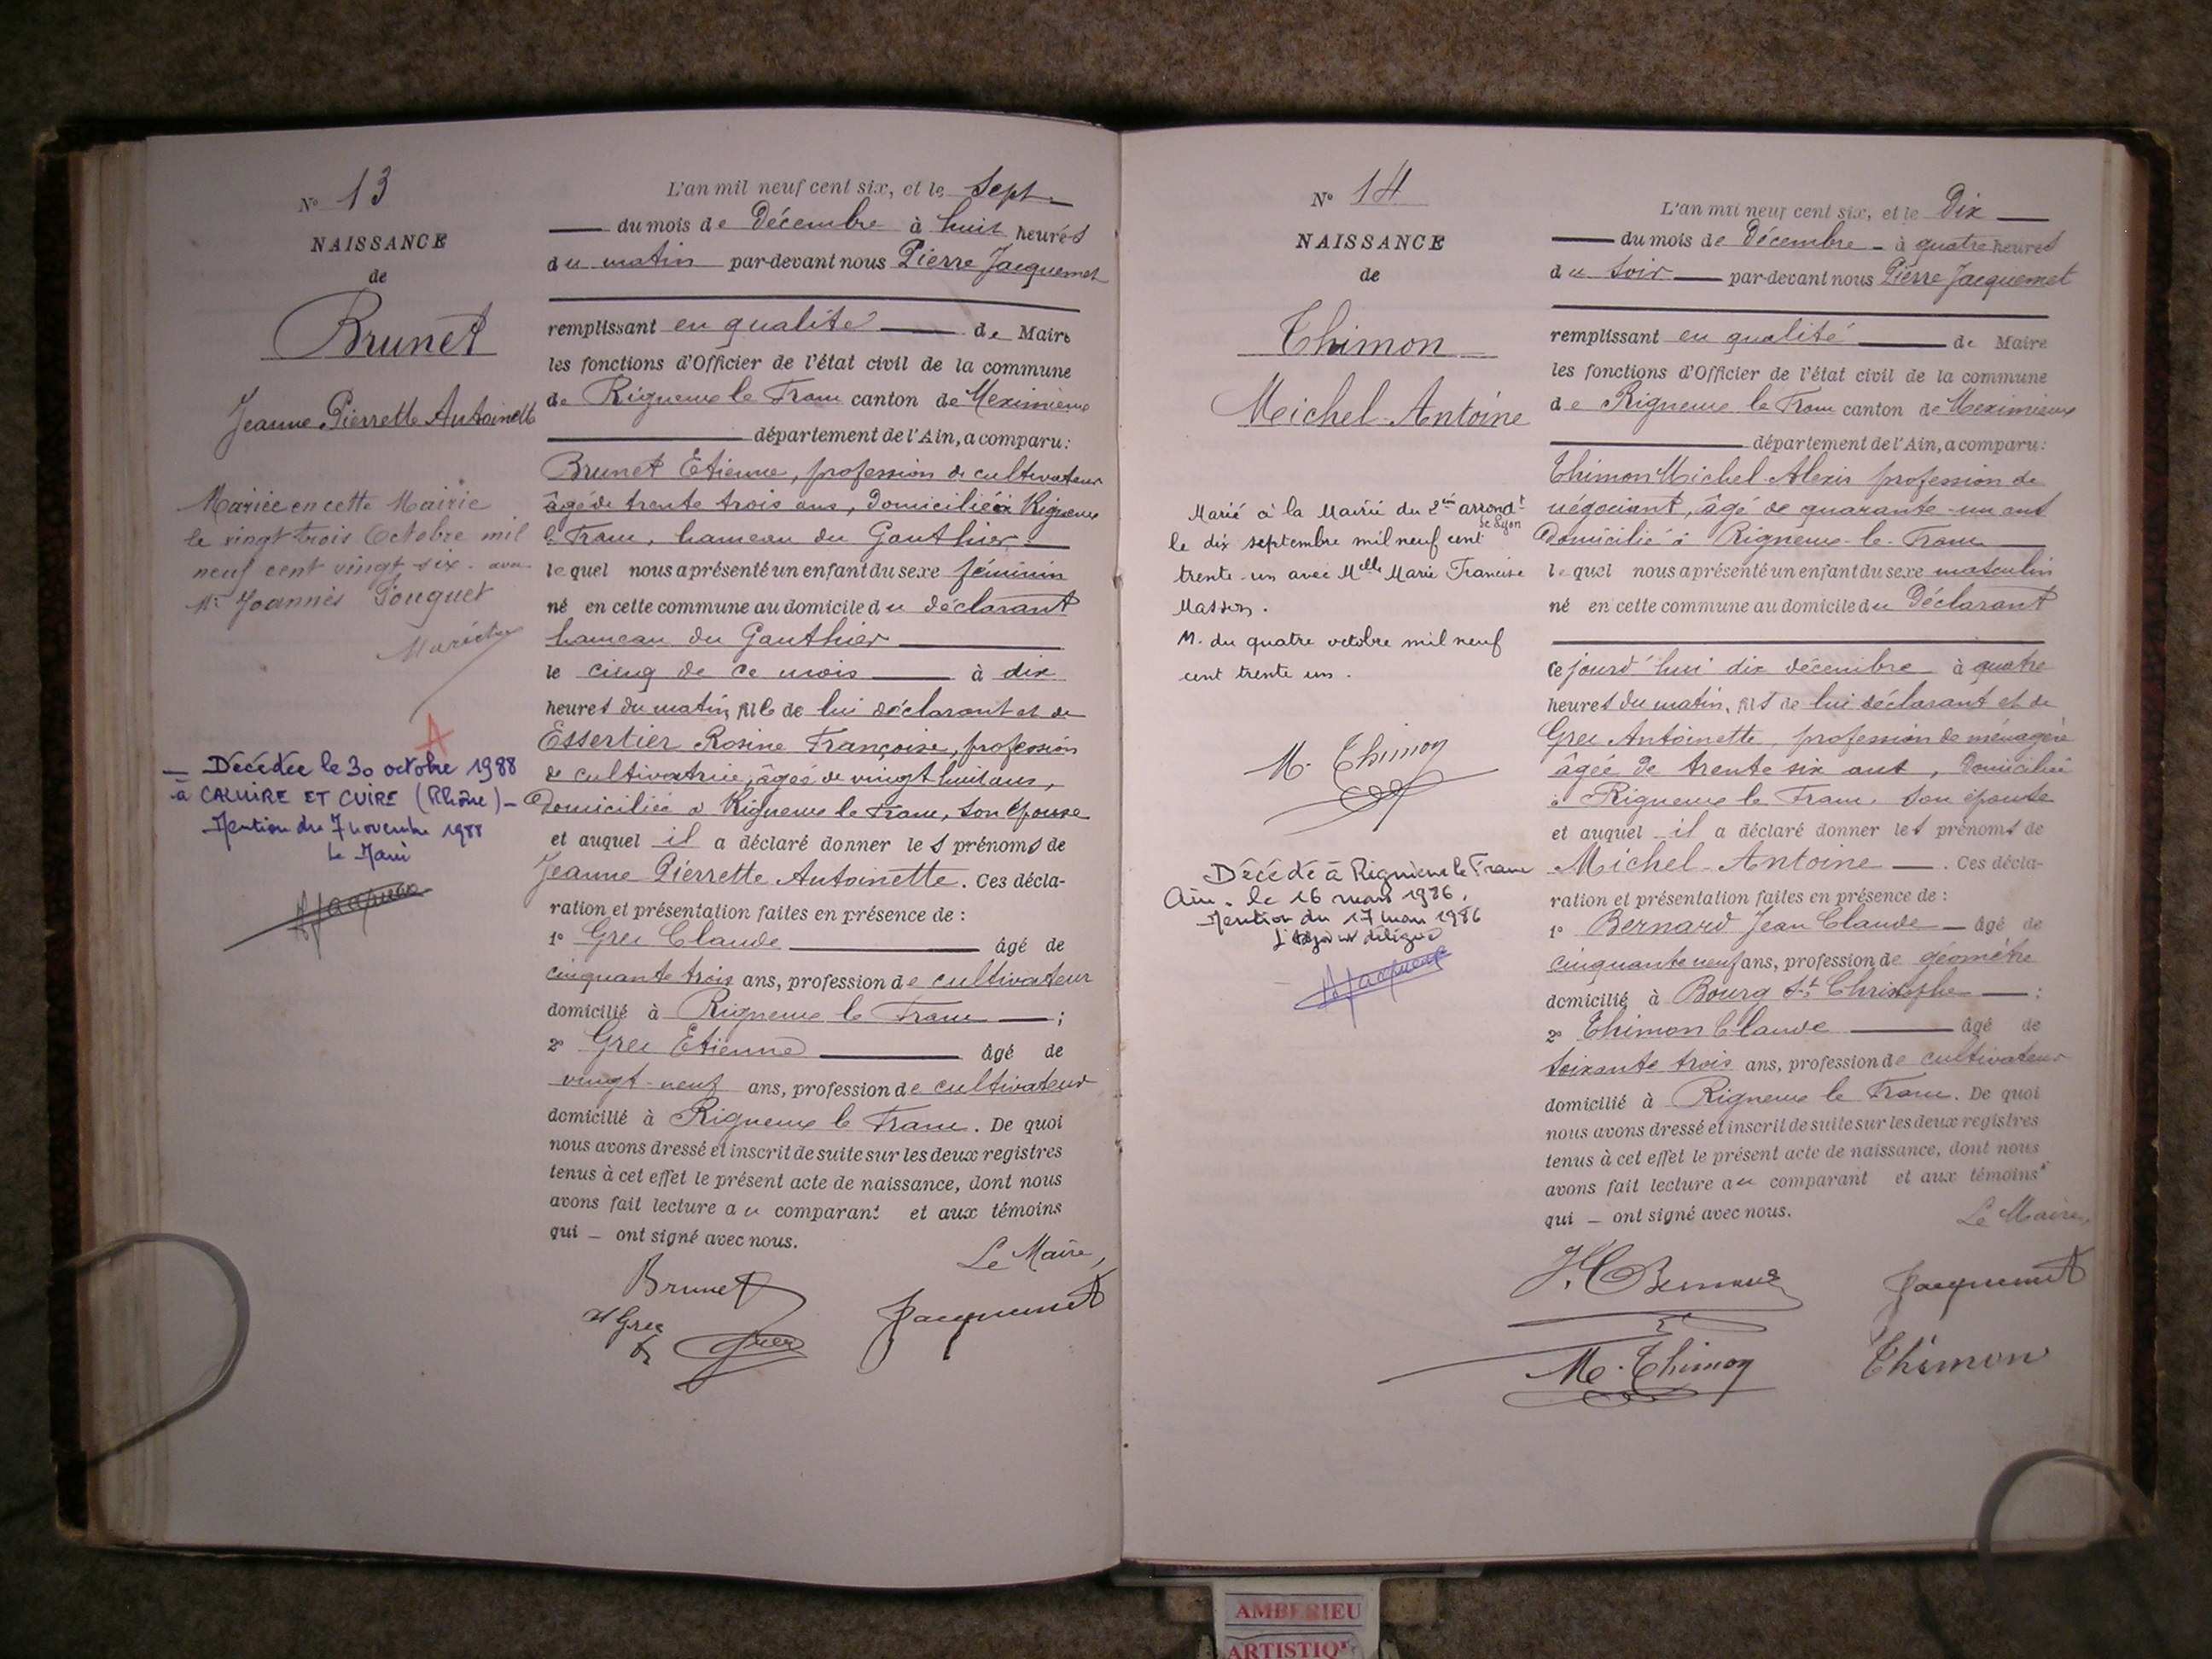 N° 13
NAISSANCE
de
Brunet
Jeanne Pierrette Antoinette
Mariée en cette Mairie
le vingt trois Octobre mil
neuf cent vingt-six. avec
Mr Joannès Pouquet
A
— Décédée le 30 octobre 1988
à CALUIRE ET CUIRE (Rhône) —
Mention du 7 novembre 1988
Le Maire
L'an mil neuf cent six, et le sept
du mois de Décembre à huit heures
du matin par-devant nous Pierre Jacquemet
remplissant en qualité de Maire
les fonctions d'Officier de l'état civil de la commune
de Rigneux le Franc canton de Meximieux
département de l'Ain, a comparu:
Brunet Etienne, profession de cultivateur
âgé de trente trois ans, domicilié à Rigneux
le Franc, hameau du Gauthier
lequel nous a présenté un enfant du sexe féminin
né en cette commune au domicile du déclarant
hameau du Gauthier
le cinq de ce mois à dix
heures du matin, fille de lui déclarant et de
Essertier Rosine Françoise, profession
de cultivatrice, âgée de vingt huit ans,
Domiciliée à Rigneux le Franc, son épouse
et auquel il a déclaré donner les prénoms de
Jeanne Pierrette Antoinette. Ces décla-
ration et présentation faites en présence de :
1° Grec Claude âgé de
cinquante trois ans, profession de cultivateur
domicilié à Rigneux le Franc ;
2° Grec Etienne âgé de
vingt-neuf ans, profession de cultivateur
domicilié à Rigneux le Franc. De quoi
nous avons dressé et inscrit de suite sur les deux registres
tenus à cet effet le présent acte de naissance, dont nous
avons fait lecture au comparant et aux témoins
qui — ont signé avec nous.
Le Maire,
Brunet
Grec
Grec
Jacquemet
N° 14
NAISSANCE
de
Thimon
Michel-Antoine
Marié à la Mairie du 2em arrondt
de Lyon
le dix septembre mil neuf cent
trente-un avec Melle Marie Francise
Masson.
M. du quatre octobre mil neuf
cent trente un.
M. Thimon
Décédé à Rignieux le Franc
Ain. le 16 mars 1986.
Mention du 17 mars 1986
L'adjoint délégué
L'an mil neuf cent six, et le Dix
du mois de Décembre - à quatre heures
du soir par-devant nous Pierre Jacquemet
remplissant en qualité de Maire
les fonctions d'Officier de l'état civil de la commune
de Rigneux le Franc canton de Meximieux
département de l'Ain, a comparu:
Thimon Michel Alexis profession de
négociant, âgé de quarante-un ans
Domicilié à Rigneux-le-Franc
lequel nous a présenté un enfant du sexe masculin
né en cette commune au domicile du Déclarant
ce jourd'hui dix décembre à quatre
heures du matin, fils de lui déclarant et de
Grec Antoinette, profession de ménagère
âgée de trente six ans, Domiciliée
à Rigneux le Franc, son épouse
et auquel il a déclaré donner les prénoms de
Michel-Antoine. Ces décla-
ration et présentation faites en présence de :
1° Bernard Jean Claude — âgé de
cinquante neuf ans, profession de géomètre
domicilié à Bourg St Christophe — ;
2° Thimon Claude âgé de
soixante trois ans, profession de cultivateur
domicilié à Rigneux le Franc. De quoi
nous avons dressé et inscrit de suite sur les deux registres
tenus à cet effet le présent acte de naissance, dont nous
avons fait lecture au comparant et aux témoins
qui — ont signé avec nous.
Le Maire,
J. C Bernard
Jacquemet
M. Thimon
Thimon
AMBERIEU
ARTISTIQ